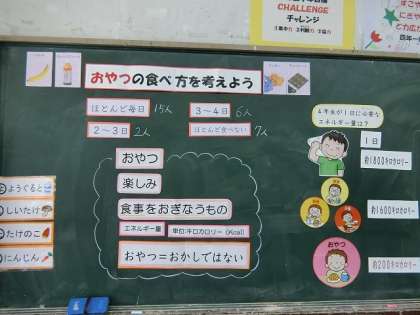 CHALLENGE
チャレンジ
おやつの食べ方を考えよう
ほとんど毎日 15人
3～4日 6人
2～3日 2人
ほとんど食べない 7人
おやつ
楽しみ
食事をおぎなうもの
エネルギー量
単位:キロカロリー(Kcal)
おやつ=おかしではない
4年生が1日に必要な
エネルギー量は?
1日
約1800キロカロリー
約1600キロカロリー
おやつ
約200キロカロリー
ようぐると
しいたけ
たけのこ
にんじん